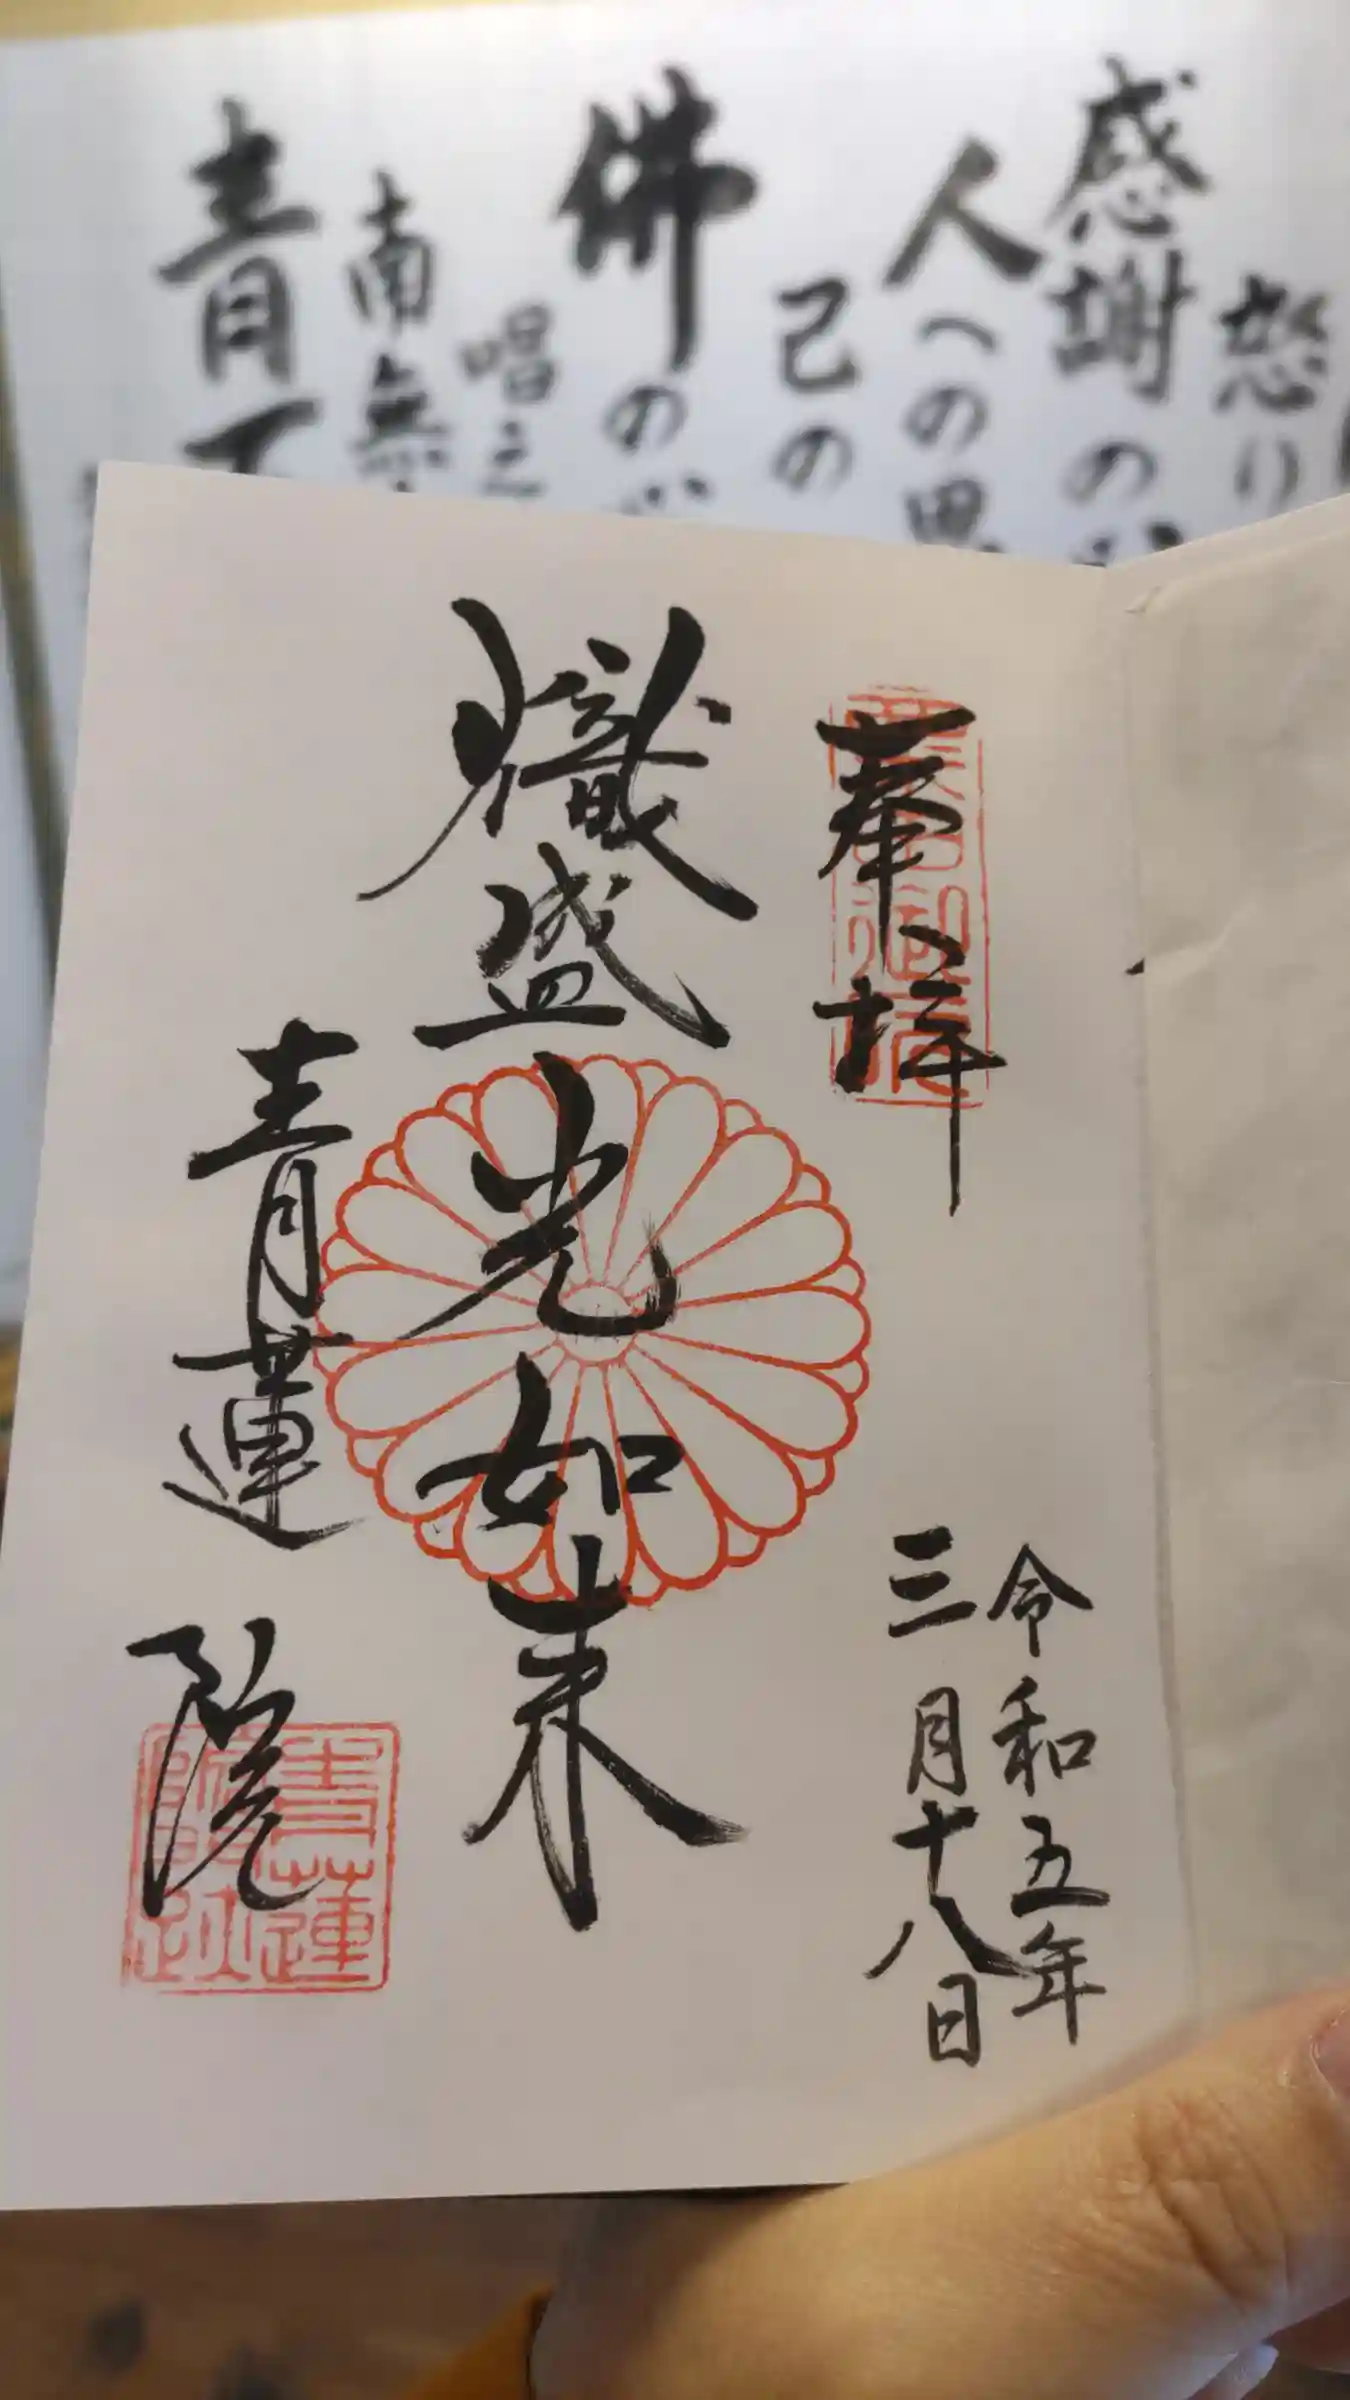 怒り
感謝の心
人への思
己の
佛の心
唱え
南無
青不
奉拝
令和五年
三月十八日
熾盛光如来
青蓮院
青蓮
門跡